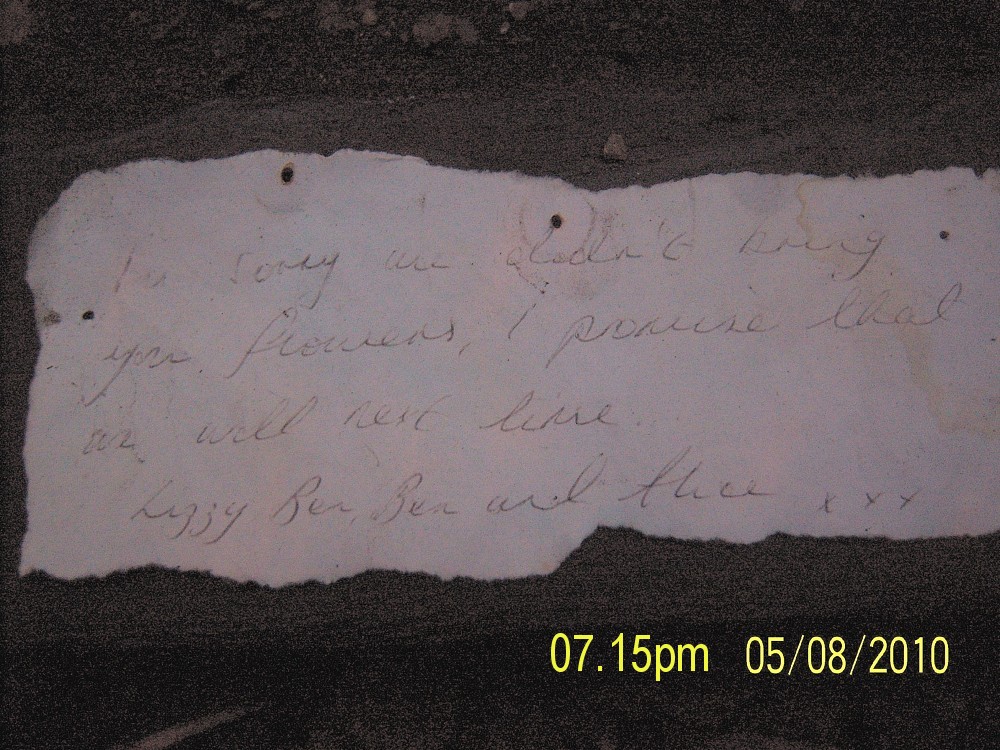 I'm sorry we didn't bring
you flowers, I promise that
we will next time.
Lizzy Ben, Ben and Alice x x x
07.15pm 05/08/2010